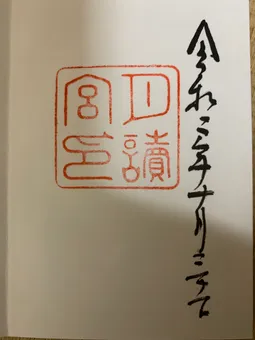 令和三年十月三十日
月讀
宮印